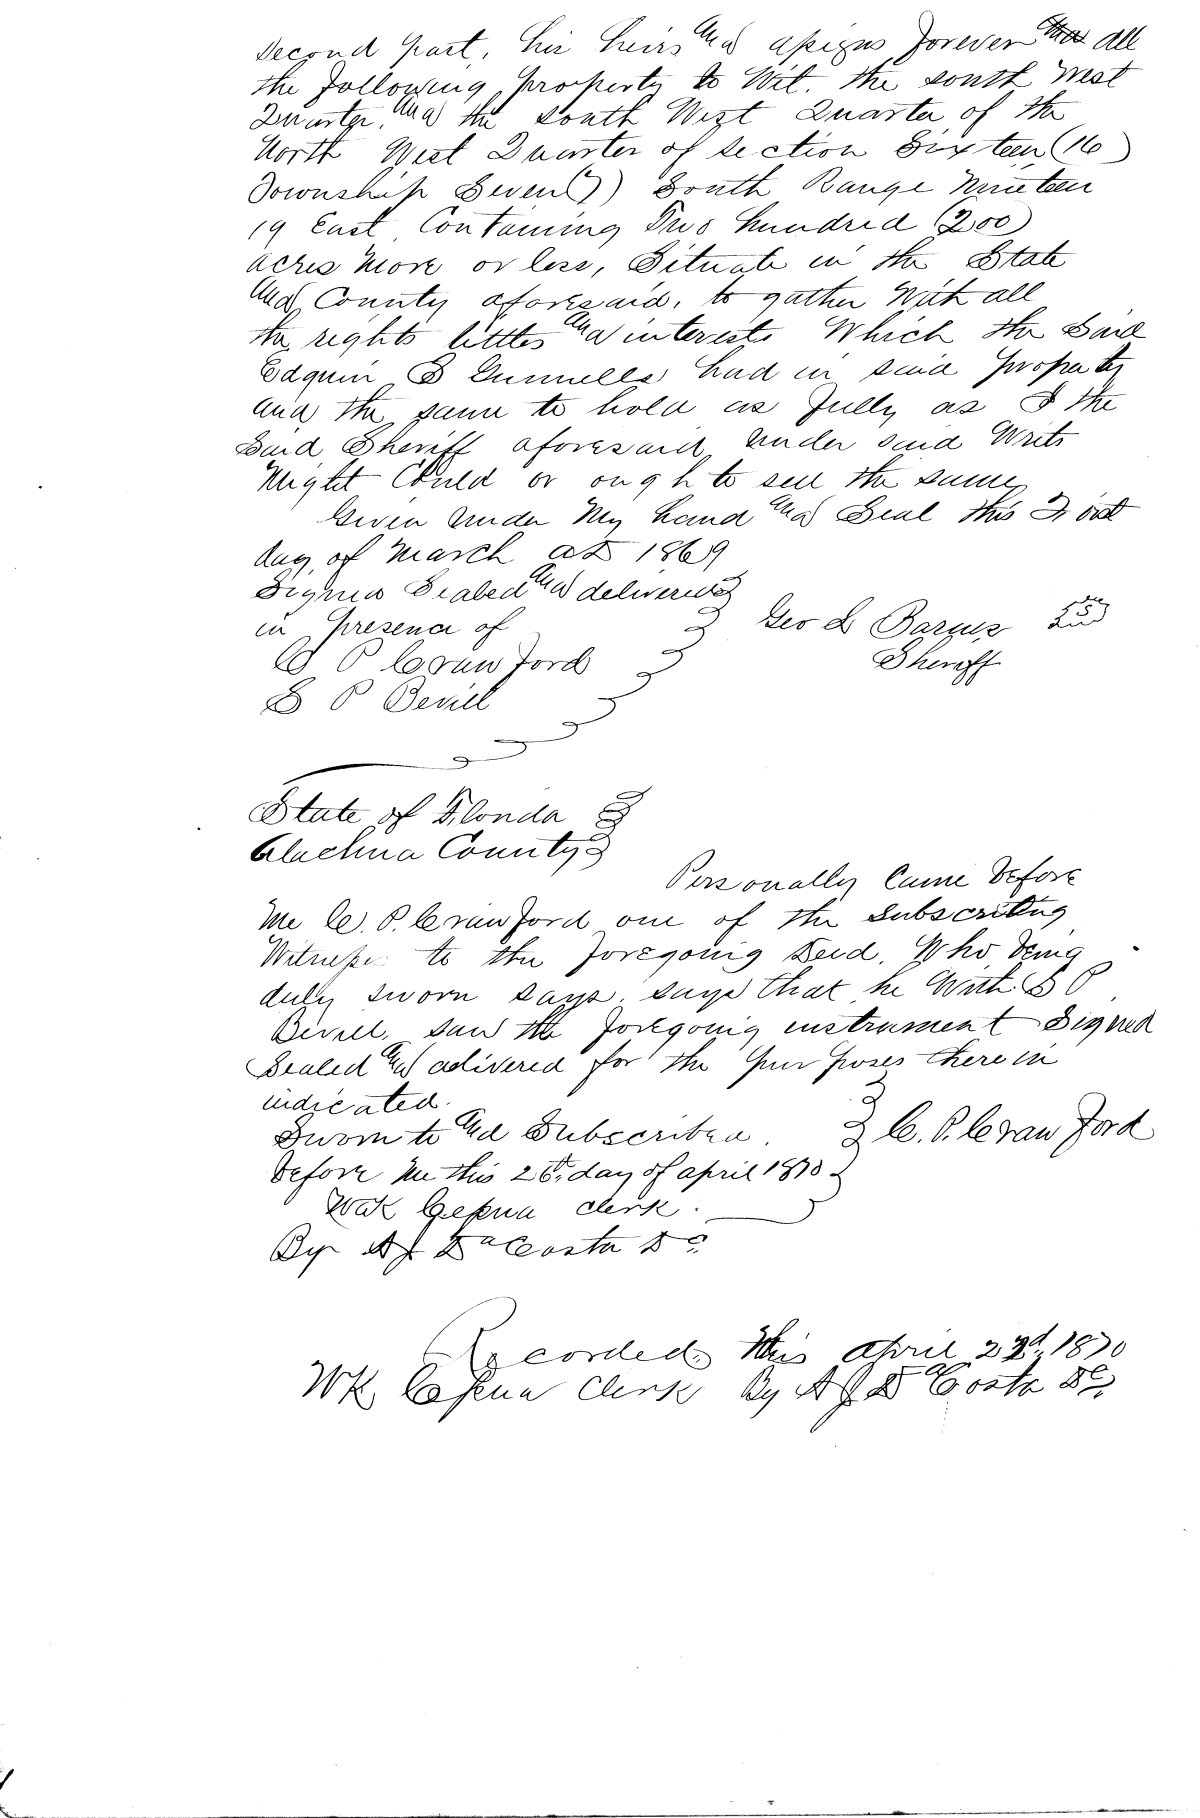 Second part, his heirs and assigns forever all
the following property to Wit. the south West
Quarter, and the south West Quarter of the
North West Quarter of section Sixteen (16)
Township Seven (7) South Range Nineteen
19 East Containing Two hundred (200)
acres More or less, Situate in the State
And County aforesaid, to gather With all
the rights tittles and interests Which the Said
S Gunnells had in said property
and the same to hold as fully as I the
Said Sheriff aforesaid under said Writs
Might Could or ought to sell the same
Given under My hand and Seal this First
day of March AD 1869
Signed Sealed and delivered
in presence of
Geo L Barnes
Sheriff
C P Crawford
S P Bevill
State of Florida
Alachua County
Personally Came before
Me C. P. Crawford one of the subscribing
Witness to the foregoing Deed, Who being
duly sworn says, says that he With S P
Bevill, saw the foregoing instrument Signed
Sealed and adivered for the purposes therein
indicated.
Sworn to and Subscribed
C. P. Crawford
before Me this day of april 1870
Wm K Cessna clerk.
By A J DaCosta DC
Recorded this april 22d, 1870
WK Cessna Clerk By A J DaCosta DC